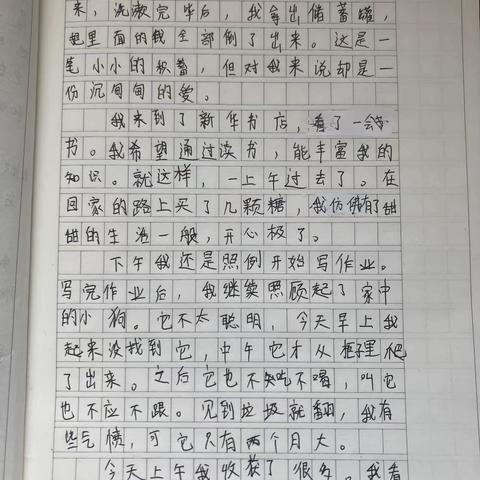 来，洗漱完毕后，我拿出储蓄罐，
把里面的我全部倒了出来。这是一
笔小小的积蓄，但对我来说却是一
份沉甸甸的爱。
我来到了新华书店，看了一会
书。我希望通过读书，能丰富我的
知识。就这样，一上午过去了。在
回家的路上买了几颗糖，我仿佛有了甜
甜的生活一般，开心极了。
下午我还是照例开始写作业。
写完作业后，我继续照顾起了家中
的小狗。它不太聪明，今天早上我
起来没找到它，中午它才从柜子里爬
了出来。之后它也不吃不喝，叫它
也不应不跟。见到垃圾就翻，我有
些气愤，可它只有两个月大。
今天上午我收获了很多。我看